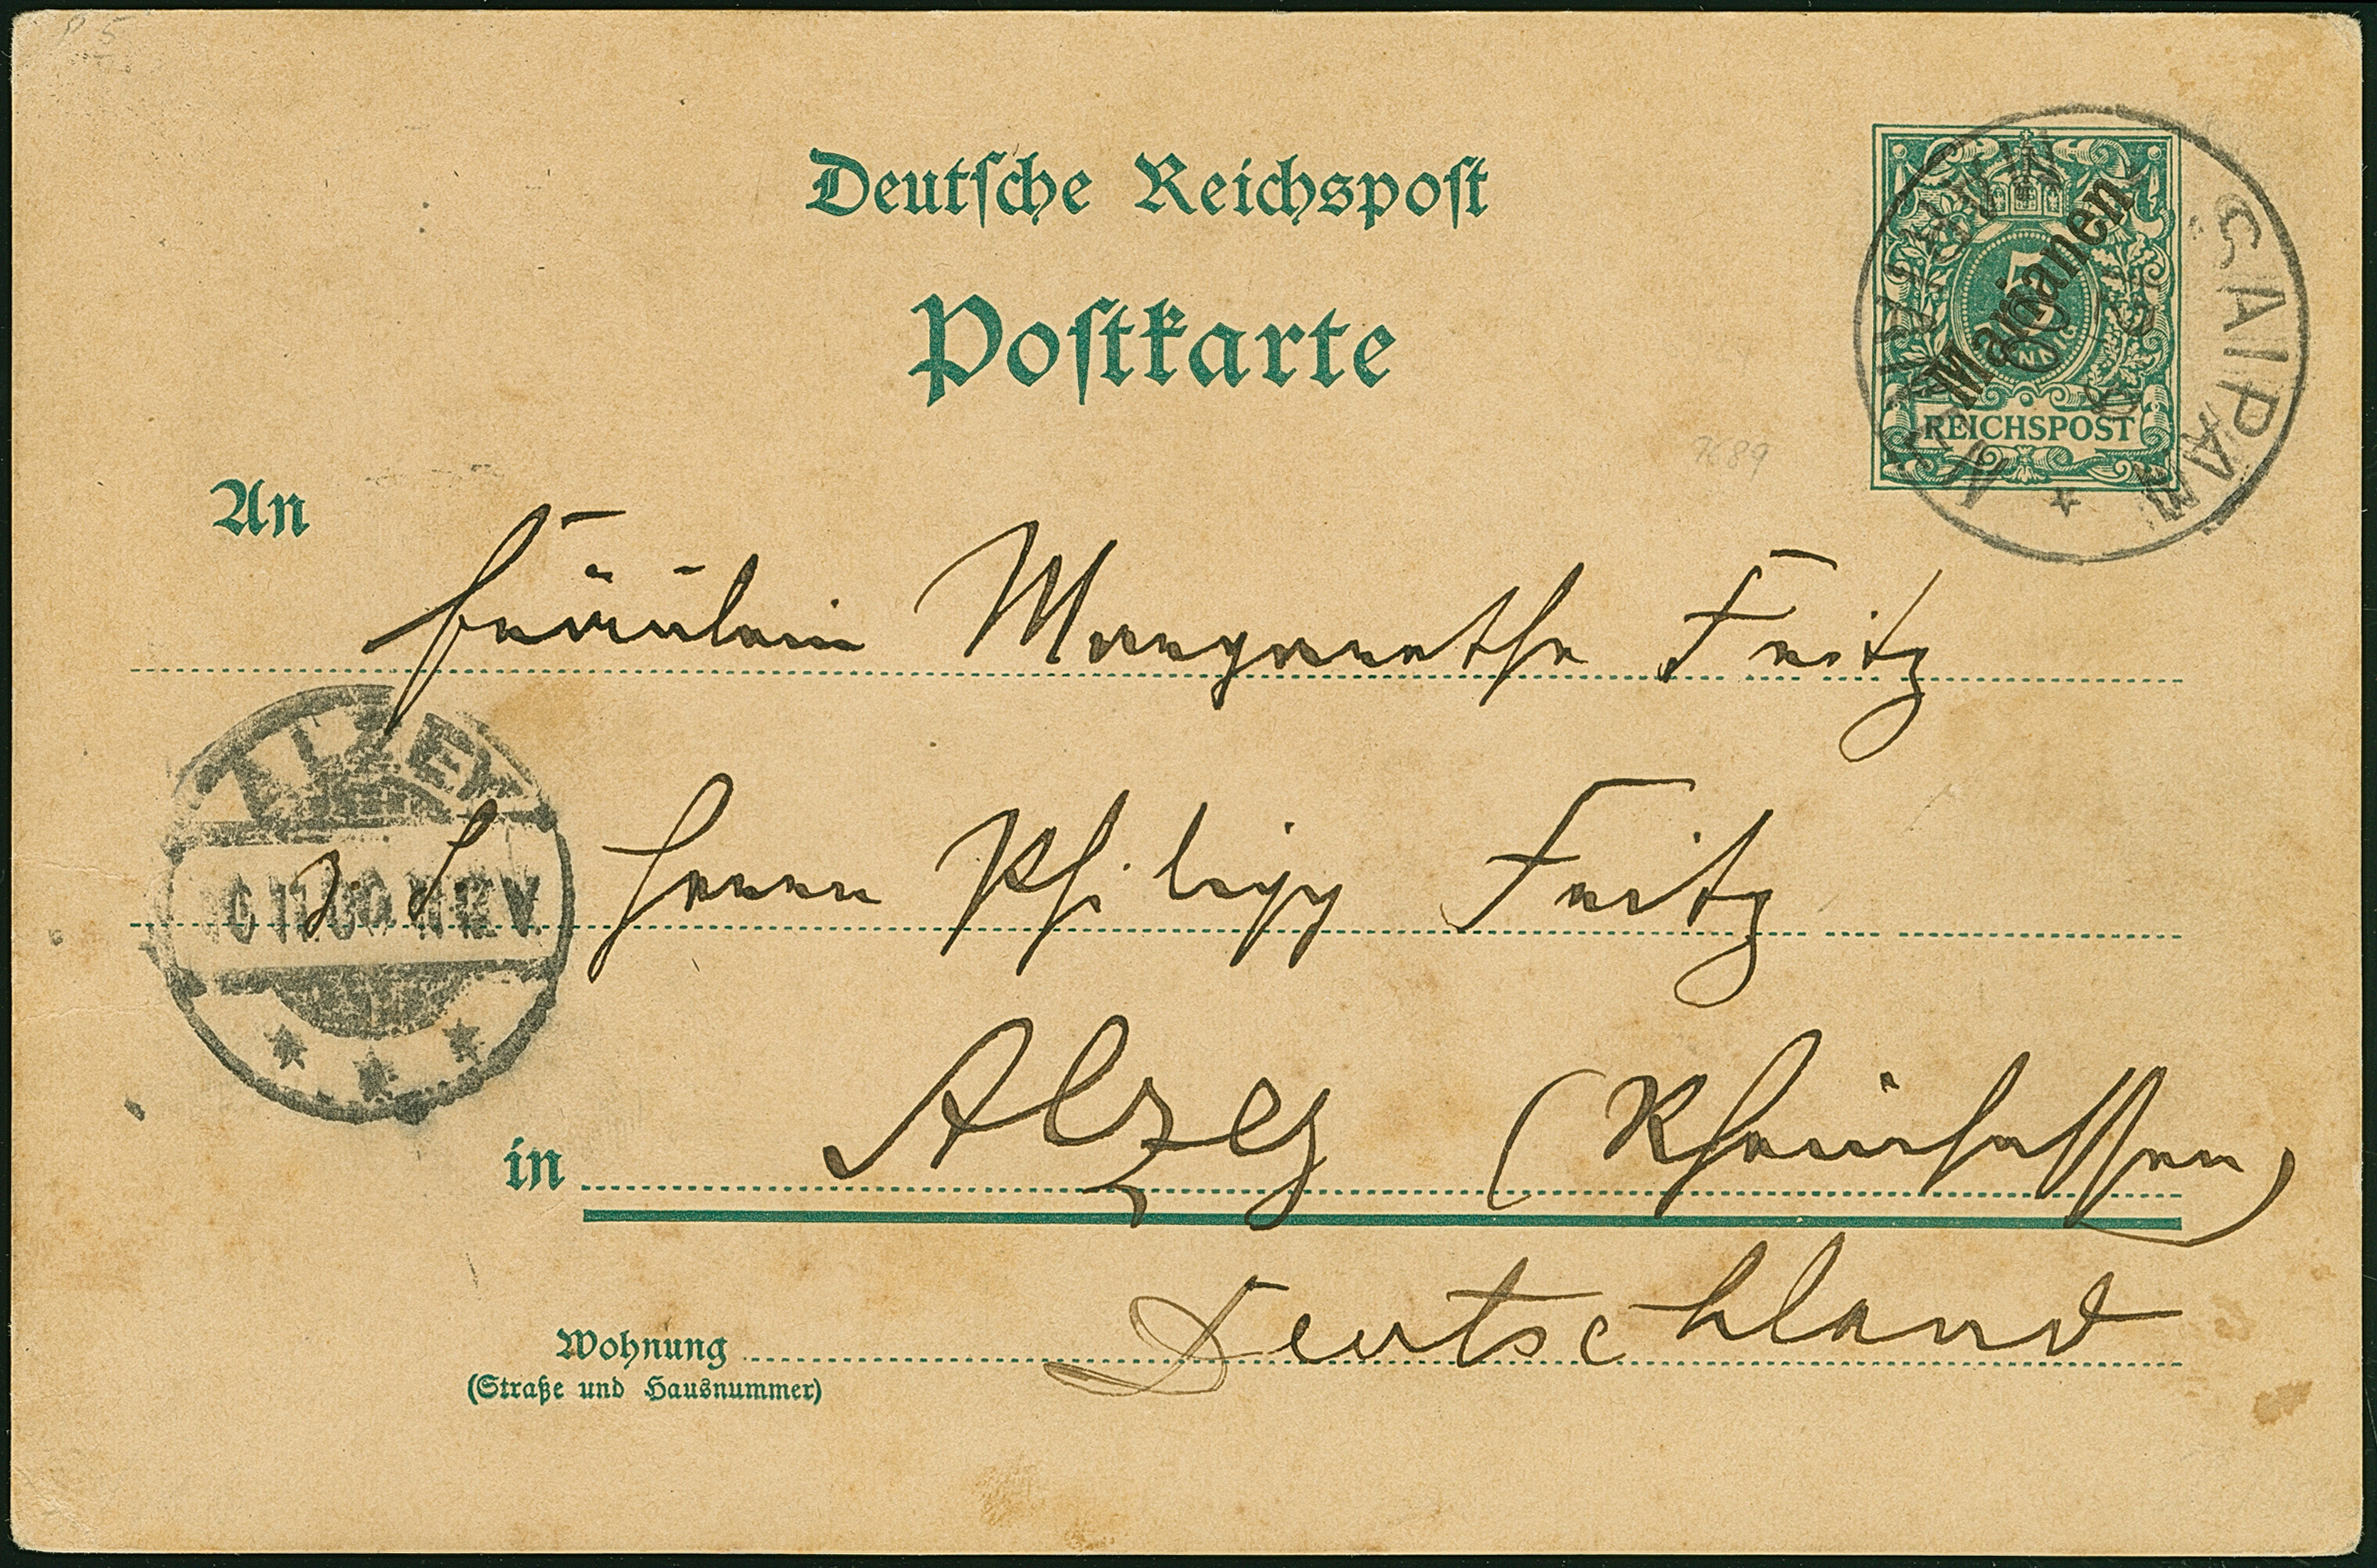 Deutsche Reichspost
Postkarte
Marianen
5
PFENNIG
REICHSPOST
SAIPAN
MARIANEN
7689
An
Fräulein Margarethe Fritz
ALZEY
z. H. Herrn Philipp Fritz
in Alzey (Rheinhessen)
Deutschland
Wohnung
(Straße und Hausnummer)